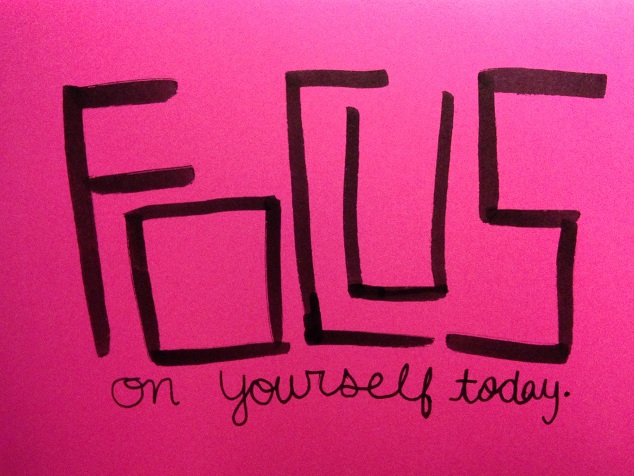 FOCUS
on yourself today.